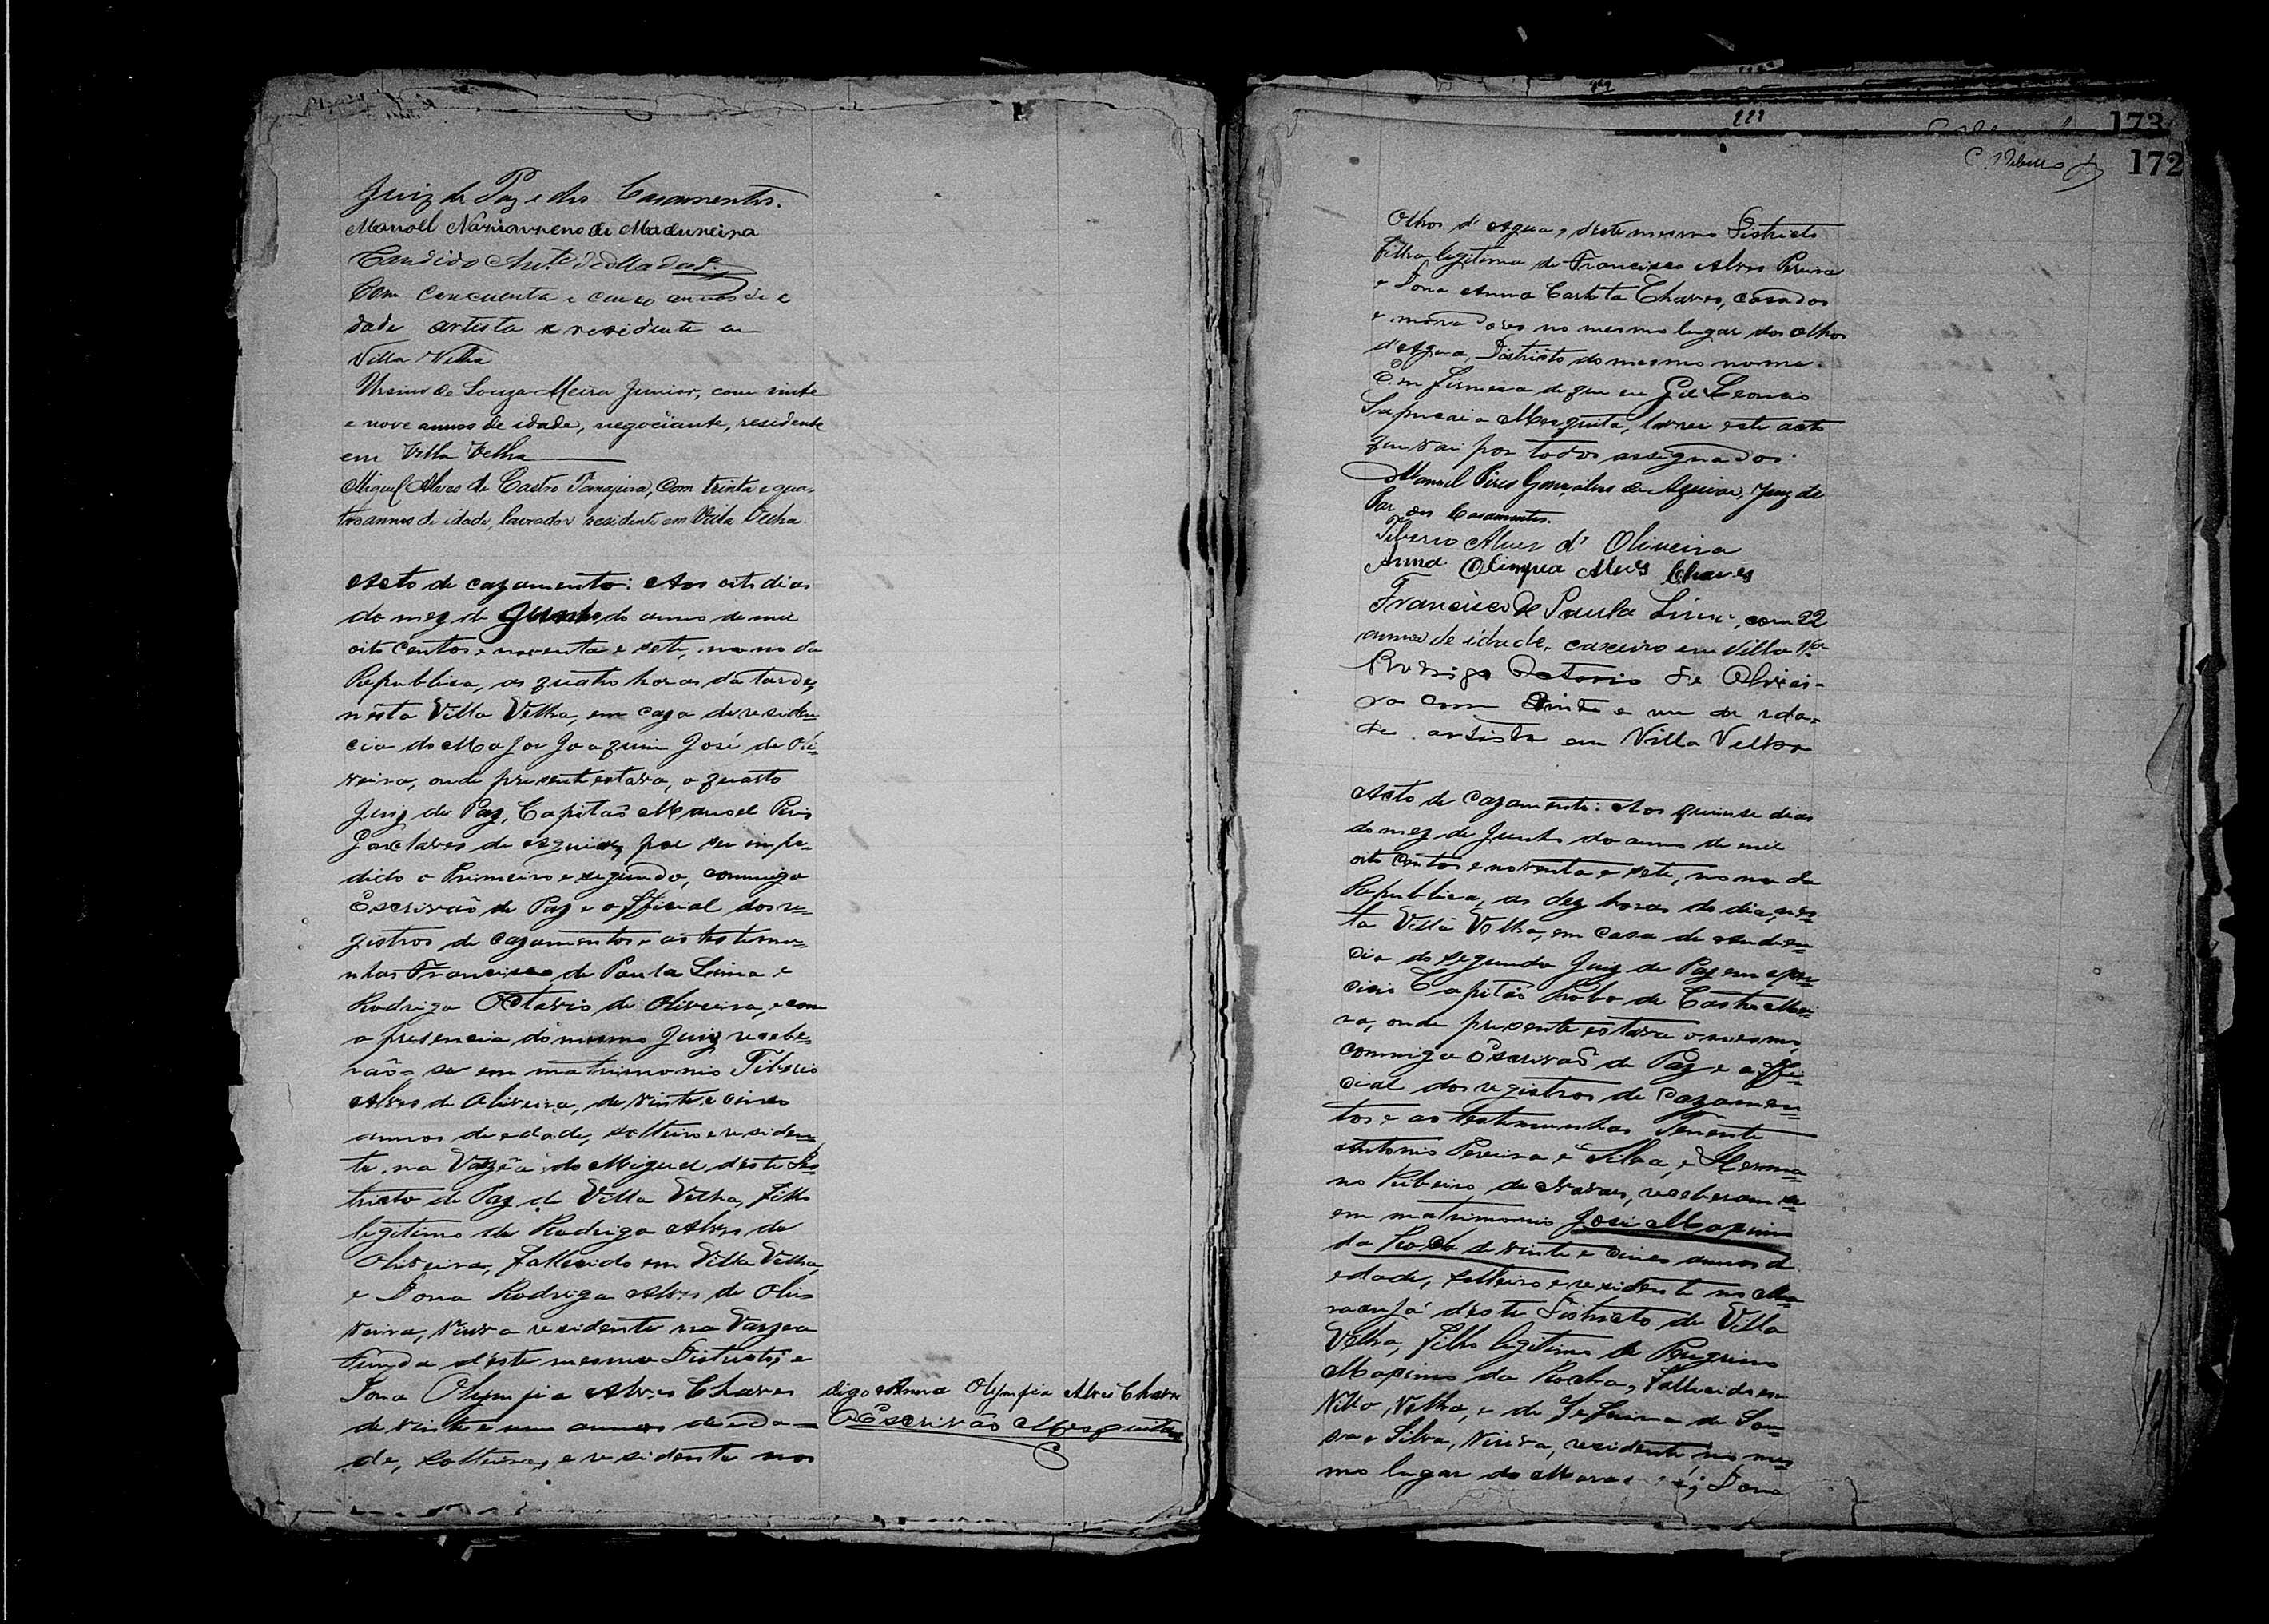 Juiz de Paz e dos Casamentos.
Manoel Nazianzeno de Madureira
Candido
Com cincuenta e cinco annos de e
dade artista e residente em
Villa Velha
Ursino de Souza Meira Junior, com vinte
e nove annos de idade, negociante, residente
em Villa Velha
Miguel Alves de Castro Tanajura, Com trinta e qua-
tro annos de idade, lavrador residente em Villa Velha.
Acto de cazamento: Aos oito dias
do mez de Junho do anno de mil
oito centos e noventa e sete, nono da
Republica, as quatro horas da tarde,
nesta Villa Velha, em caza de residen=
cia do Major Joaquim José de Oli=
veira, onde presente estava, o quarto
Juiz de Paz, Capitaõ Manoel Pires
Gonclaves de Aguiar, por ser impe-
dido o Primeiro e segundo, commigo
Escrivaõ de Paz e official dos re=
gistros de cazamentos e as testemu=
nhas Francisco de Paula Lima e
Rodrigo Octavio de Oliveira, e com
a presencia do mesmo Juiz recebe=
rão=se em matrimonio Tiberio
Alves de Oliveira, de vinte e cinco
annos de edade, solteiro e residen=
te na Varzêa do Miguel d'este Dis=
tricto de Paz de Villa Velha, filho
legitimo de Rodrigo Alves de
Oliveira, fallecido em Villa Velha,
e Dona Rodriga Alves de Oli=
veira, viuva residente na Varzea
Funda d'este mesmo Districto; e
Dona Olympia Alves Chaves
de vinte e um annos de eda=
de, solteira, e residente nos
digo Anna Olympia Alves Chaves
O Escrivão Mesquita
173
172
Olhos d'Agua, d'este mesmo Districto
filha legitima de Francisco Alves Pereira
e Dona Anna Carlota Chaves, casados
e moradores no mesmo lugar dos Olhos
d'Agua, Districto do mesmo nome.
Em firmesa do que eu Gil Leoncio
Sapucaia Mesquita, lavrei este acto
que vai por todos assignados.
Manoel Pires Gonçalves de Aguiar, Juiz de
Paz dos Casamentos.
Tiberio Alves d' Oliveira
Anna Olimpia Alves Chaves
Francisco de Paula Lima, com 22
annos de idade, caxeiro em Villa Vª
Rodrigo Octavio de Olivei-
ra com vinte e um de ida=
de artista em Villa Velha
Acto de cazamento: Aos quinse dias
do mez de Junho do anno de mil
oito centos e noventa e sete, nono da
Republica, as dez horas do dia, nes=
ta Villa Velha, em casa de audien=
cia do segundo Juiz de Paz em exer=
cicio Capitaõ Probo de Castro Mei=
ra, onde presente estava o mesmo,
commigo Escrivaõ de Paz e offi=
cial dos registros de cazamen=
tos e as testemunhas Tenente
Antonio Pereira e Silva, e Herma=
no Ribeiro de Novaes, receberam se
em matrimonio José Maximo
da Rocha de vinte e cinco annos d
edade, solteiro e residente no Ma=
racujá d'este Districto de Villa
Velha, filho legitimo de Peregrino
Maximo da Rocha, fallecido em
Villa Velha, e de Zeferina de Sou=
sa e Silva, viuva, residente no mes=
mo lugar do; Dona